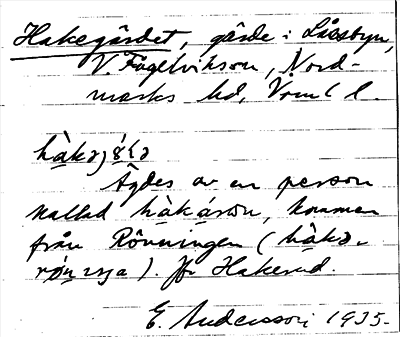 Hakegärdet, gärde i Låssbyn,
V. Fågelviksson, Nord-
marks hd, Vrml l.
hàkə
Ägdes av en person
kallad hàkáron, kommen
från Rönningen (hàkə-
). Jfr Hakerud.
E. Andersson 1935.